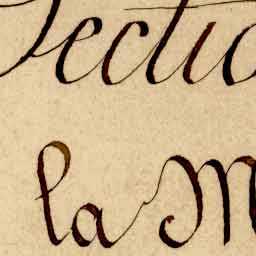 Sectio
la M